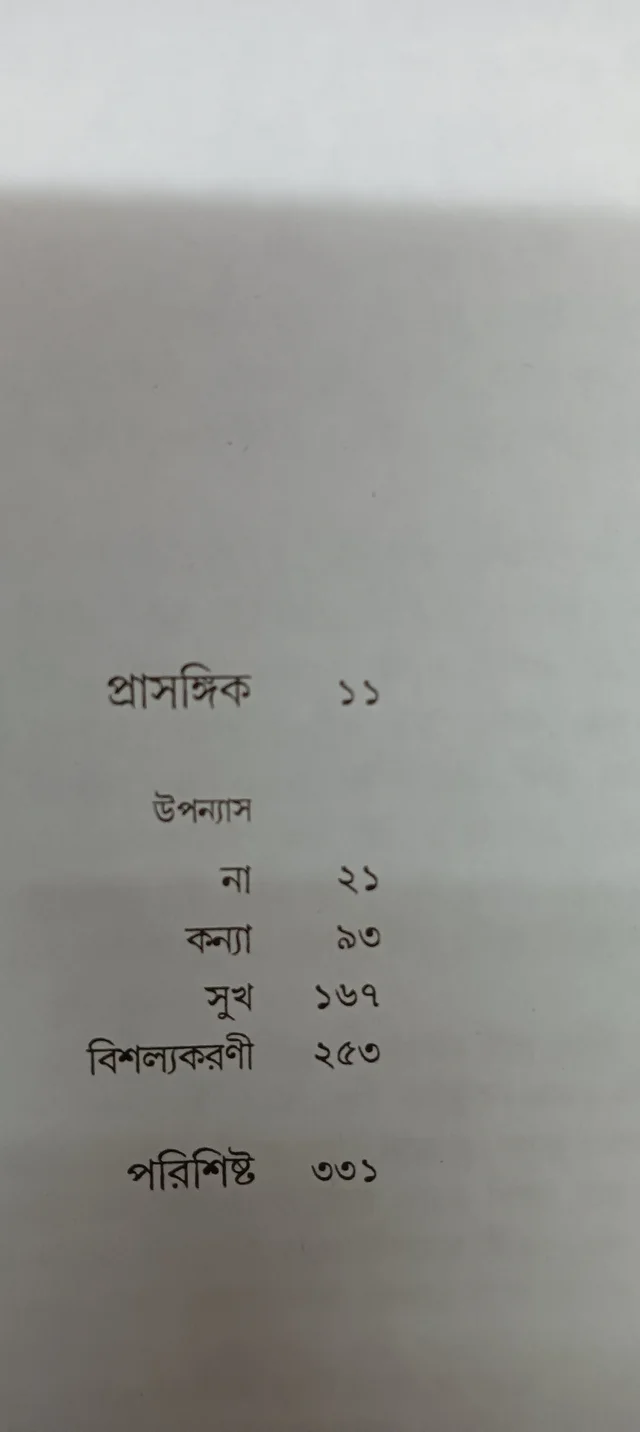 প্রাসঙ্গিক ১১
উপন্যাস
না ২১
কন্যা ৯৩
সুখ ১৬৭
বিশল্যকরণী ২৫৩
পরিশিষ্ট ৩৩১